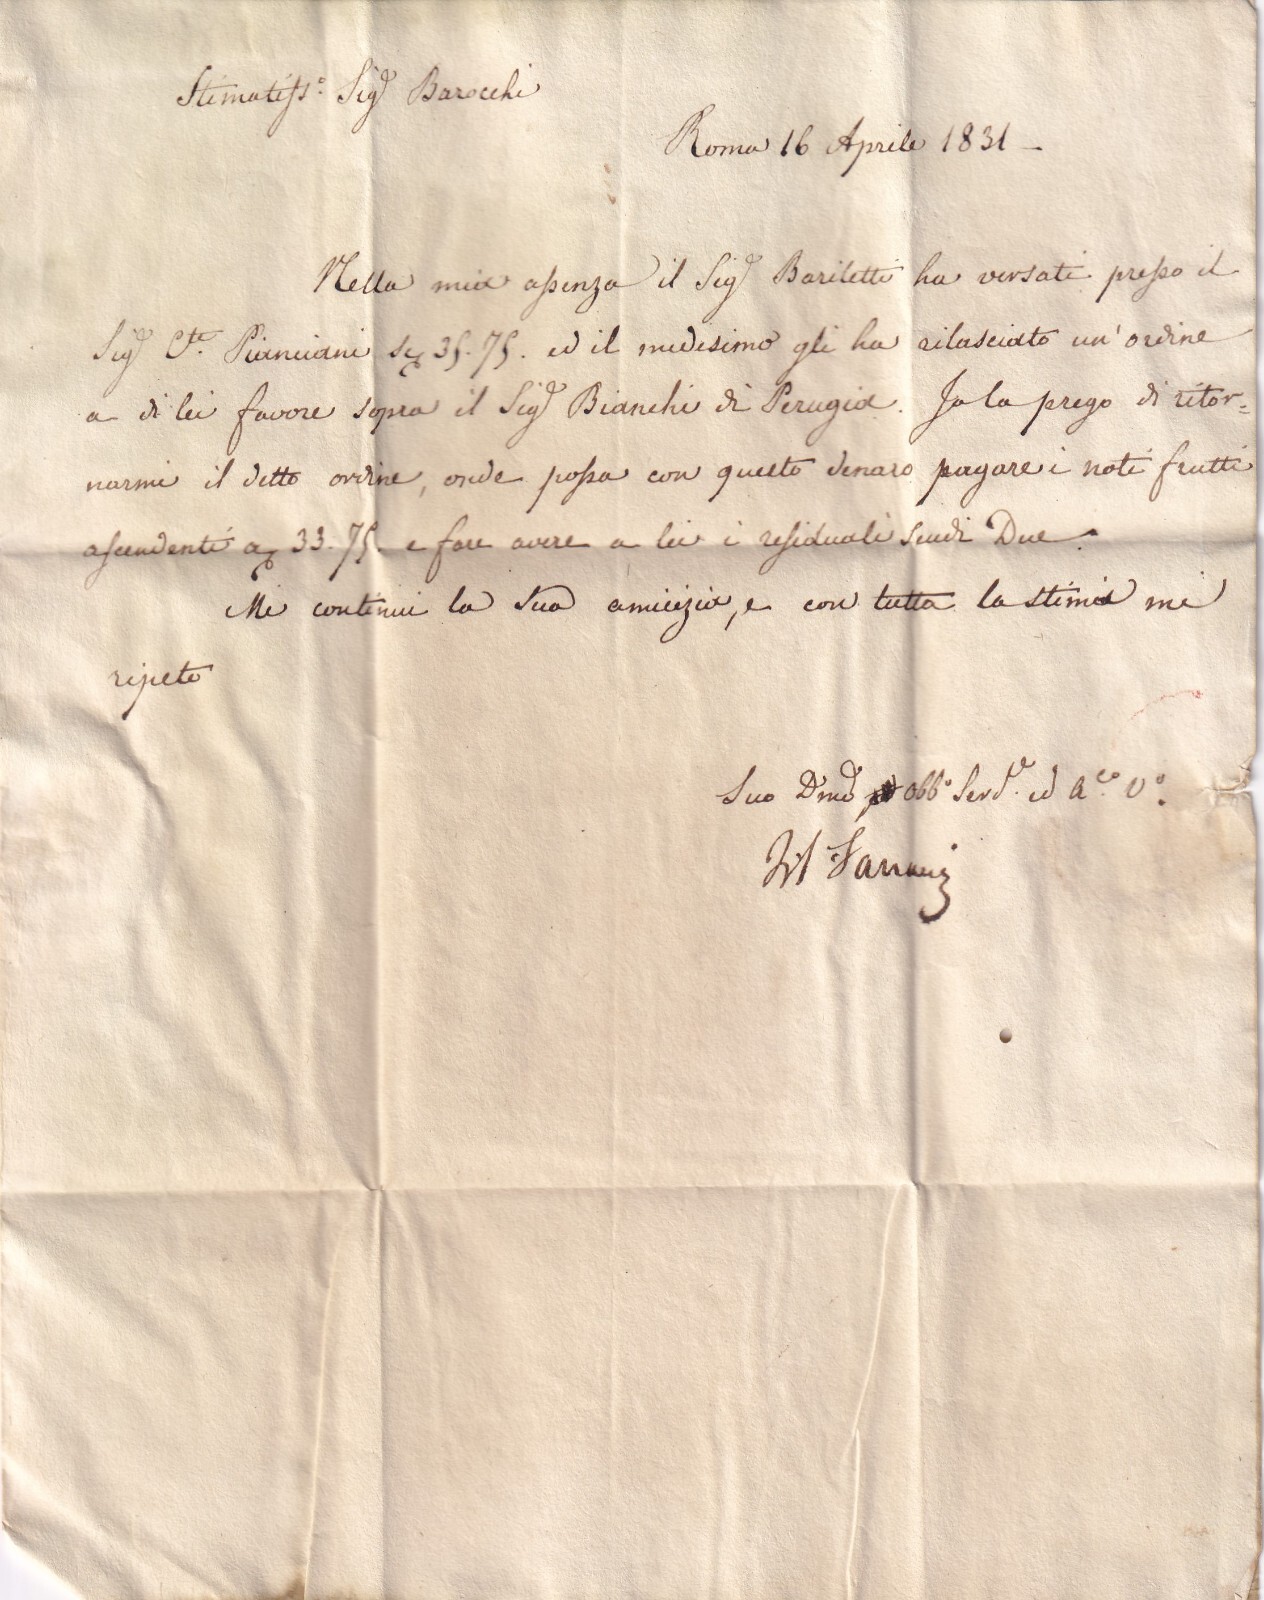 Stimatiss.o Sig.r Barocchi
Roma 16 Aprile 1831 –
Nella mia assenza il Sig.r Bariletti ha versati presso il
Sig.r C.te Pianciani 35.75. ed il medesimo gli ha rilasciato un' ordine
a di lei favore sopra il Sig.r Bianchi di Perugia. Io la prego di ritor=
narmi il detto ordine, onde possa con questo denaro pagare i noti frutti
ascendenti a 33.75. e fare avere a lei i residuali Scudi Due.
Mi continui la sua amicizia, e con tutta la stima mi
ripeto
Suo obb.o Serv.e ed A.co V.o